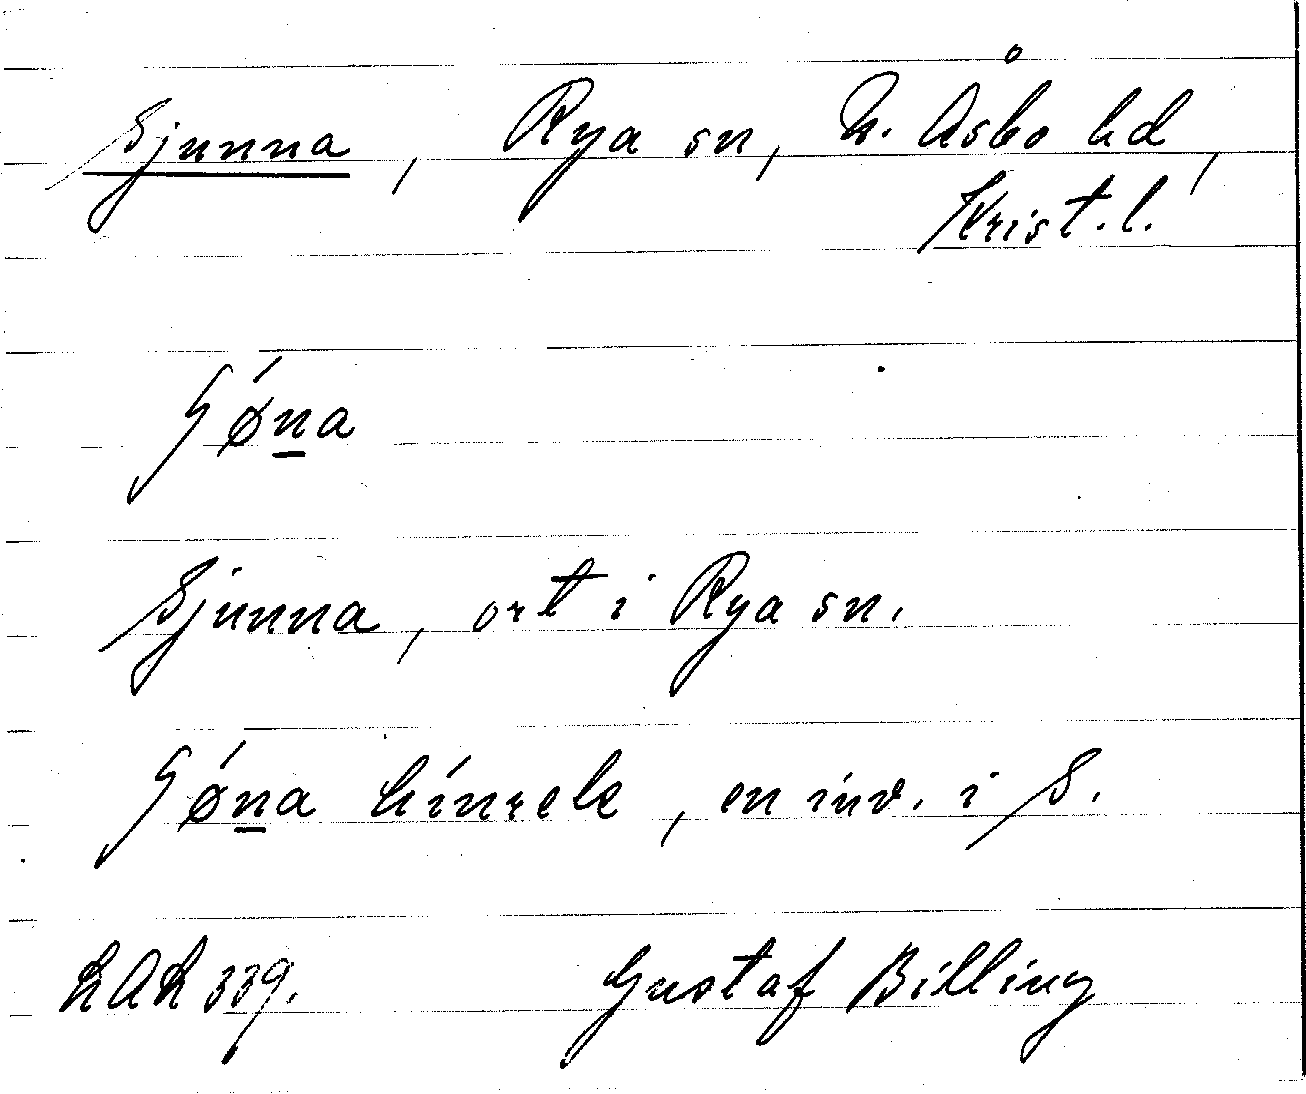 Sjunna, Rya sn, N. Åsbo hd,
Krist. l.
ʃǿna
Sjunna, ort i Rya sn.
ʃǿna hínrek, en inv. i S.
LAL 339. Gustaf Billing